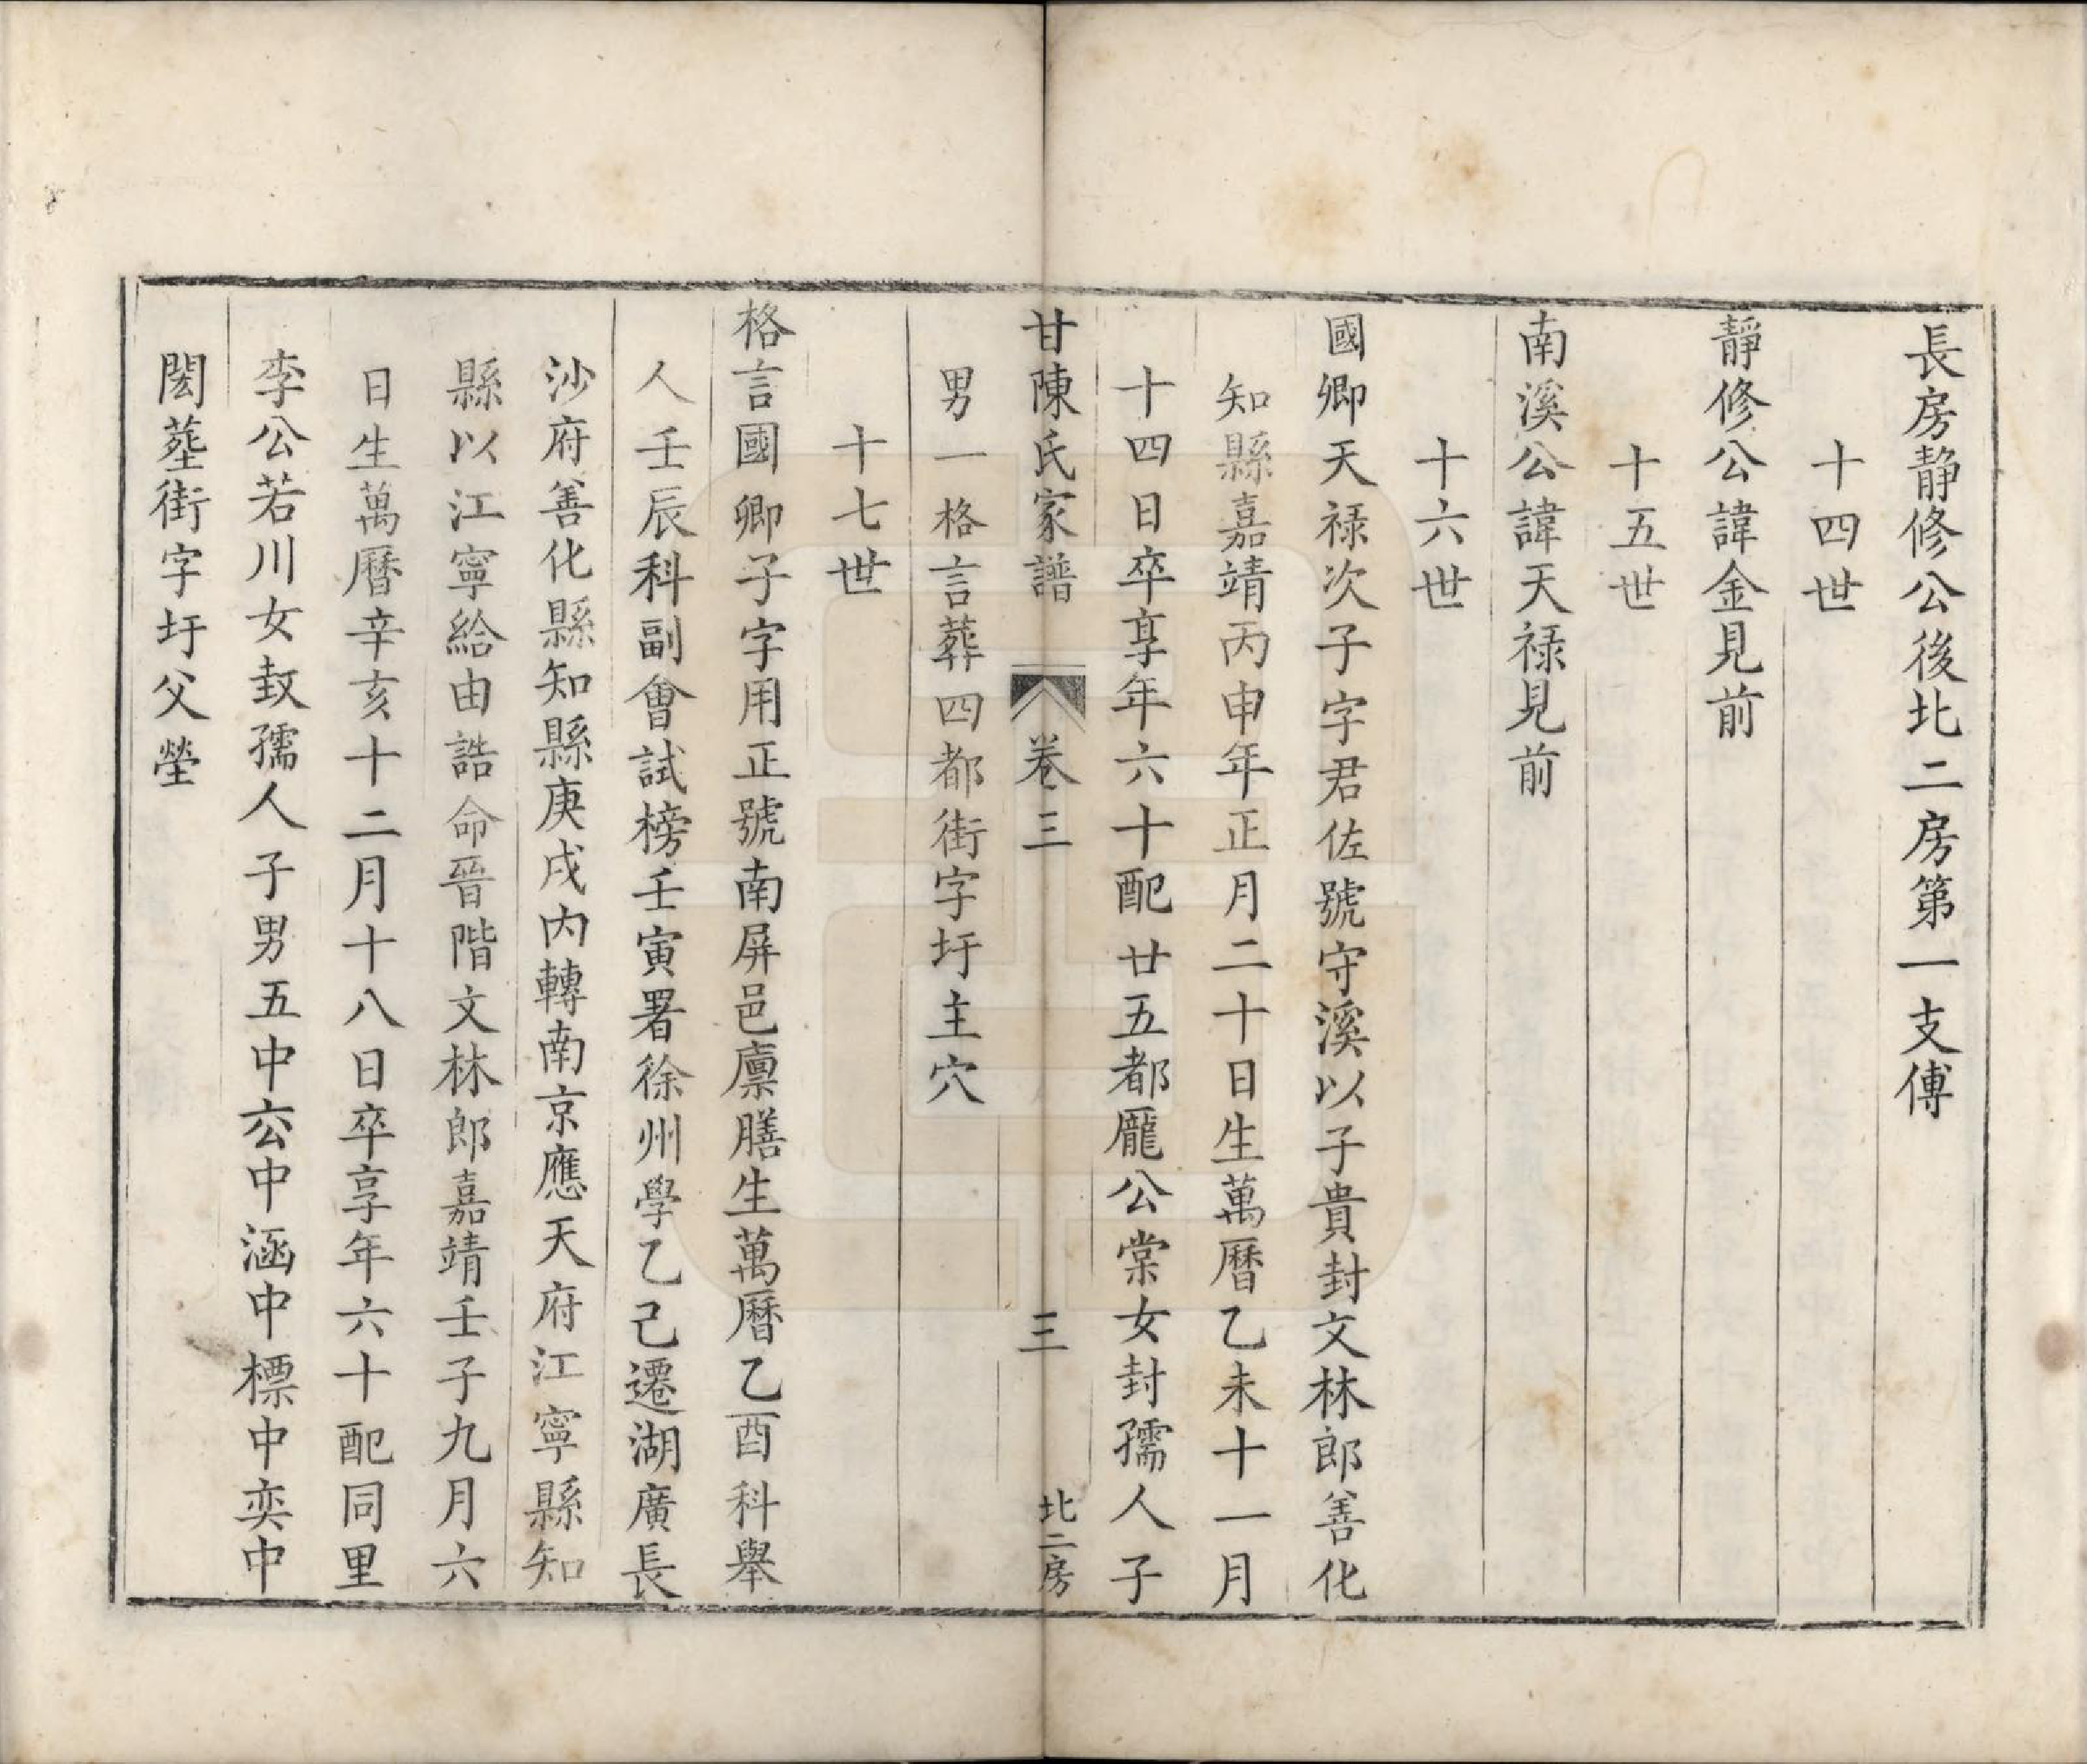 長房静修公後北二房第一支傳
十四世
靜修公諱金見前
十五世
南溪公諱天祿見前
十六世
國卿天祿次子字君佐號守溪以子貴封文林郎善化
知縣嘉靖丙申年正月二十日生萬曆乙未十一月
十四日卒享年六十配廿五都龐公棠女封孺人子
男一格言葬四都街字圩主穴
甘陳氏家譜 卷三 三 北二房
十七世
格言國卿子字用正號南屏邑廩膳生萬曆乙酉科舉
人壬辰科副會試榜壬寅署徐州學乙己遷湖廣長
沙府善化縣知縣庚戌內轉南京應天府江寧縣知
縣以江寧給由誥命晉階文林郎嘉靖壬子九月六
日生萬曆辛亥十二月十八日卒享年六十配同里
李公若川女敕孺人子男五中厷中涵中標中奕中
閎塟街字圩父塋